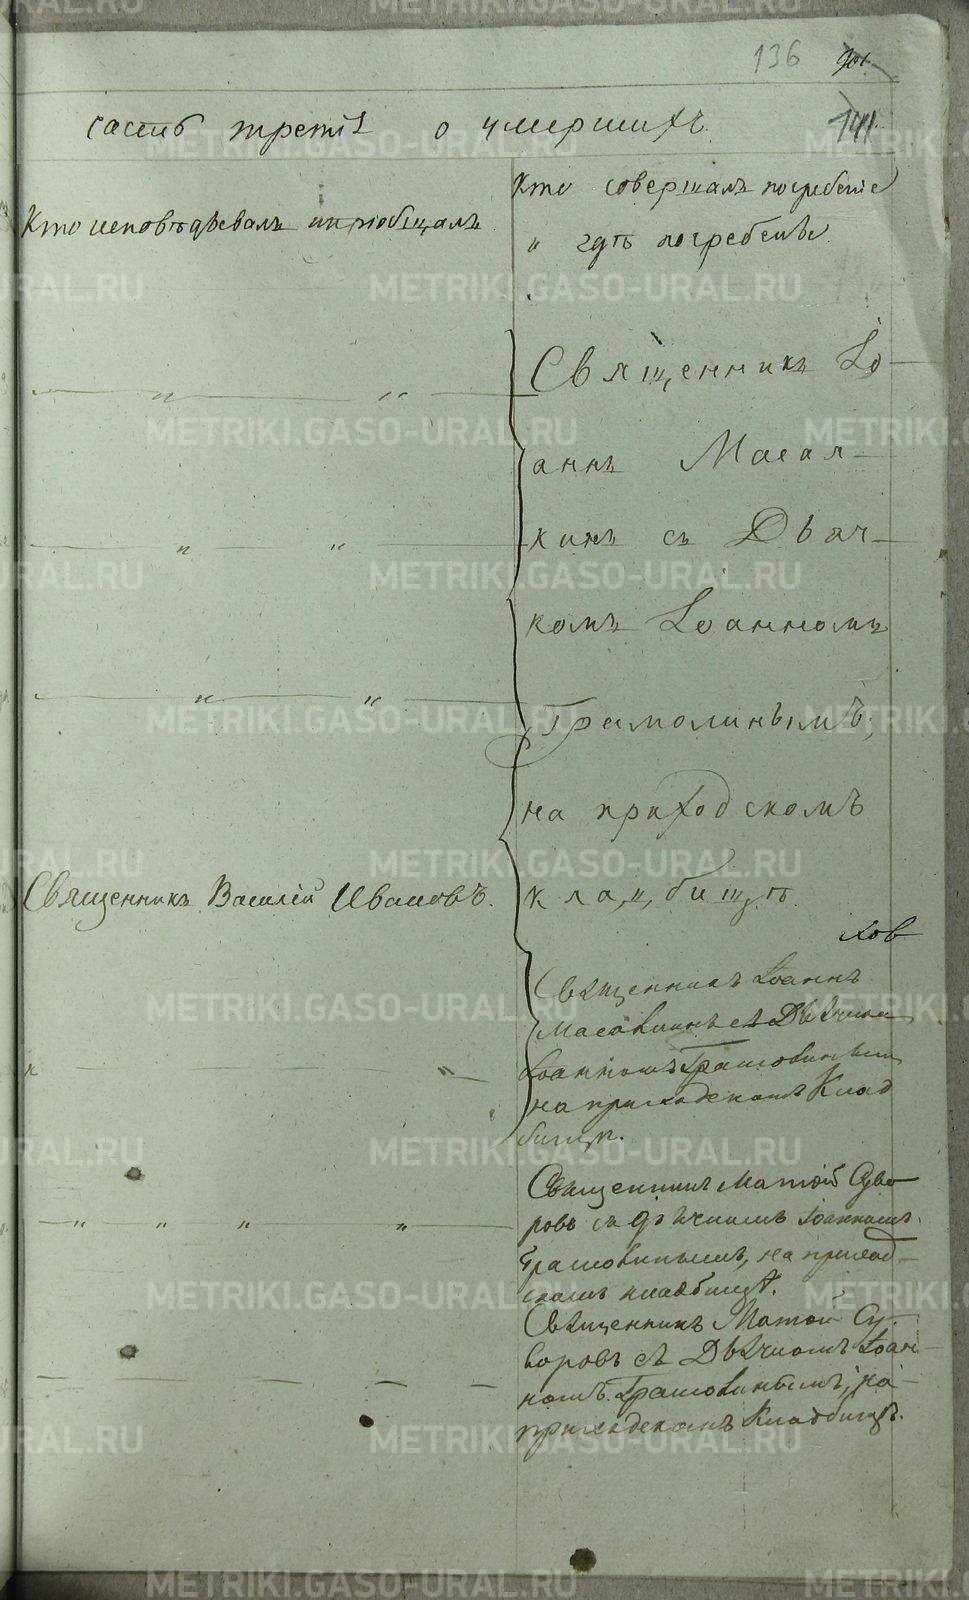 136 901
141
часть третія о умершихъ.
Кто исповѣдывалъ и пріобщалъ.
Кто совершалъ погребеніе
и гдѣ погребены.
Священникъ Іо-
аннъ Масал-
кинъ съ Дьяч-
комъ Іоанномъ
Грамолинымъ,
на приходскомъ
кладбищѣ.
Священникъ Василій Ивановъ.
хов
Священникъ Іоаннъ
съ Дьячкомъ
Іоанномъ
на приходскомъ Клад
бищѣ.
Священникъ Матѳій Суво
ровъ съ дьячкомъ Іоанномъ
на приход-
скомъ кладбищѣ.
Священникъ Матѳій Су-
воровъ съ Дьячкомъ Іоан-
номъ на-
приходскомъ Кладбищѣ.
METRIKI.GASO-URAL.RU